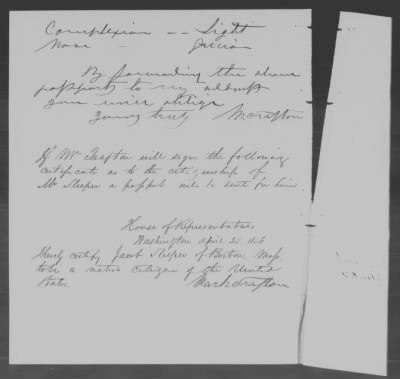 Complexion -- Light
Nose - Grecian
By forwarding the above
passport to my address
you will oblige
Yours truly M Trafton
If Mr Trafton will sign the following
certificate as to the citizenship of
Mr Sleeper a passpot will be sent for him
House of Representatives
Washington April 25 1856
I hereby certify Jacob Sleeper of Boston, Mass.
to be a native citizen of the United
States.
Mark Trafton